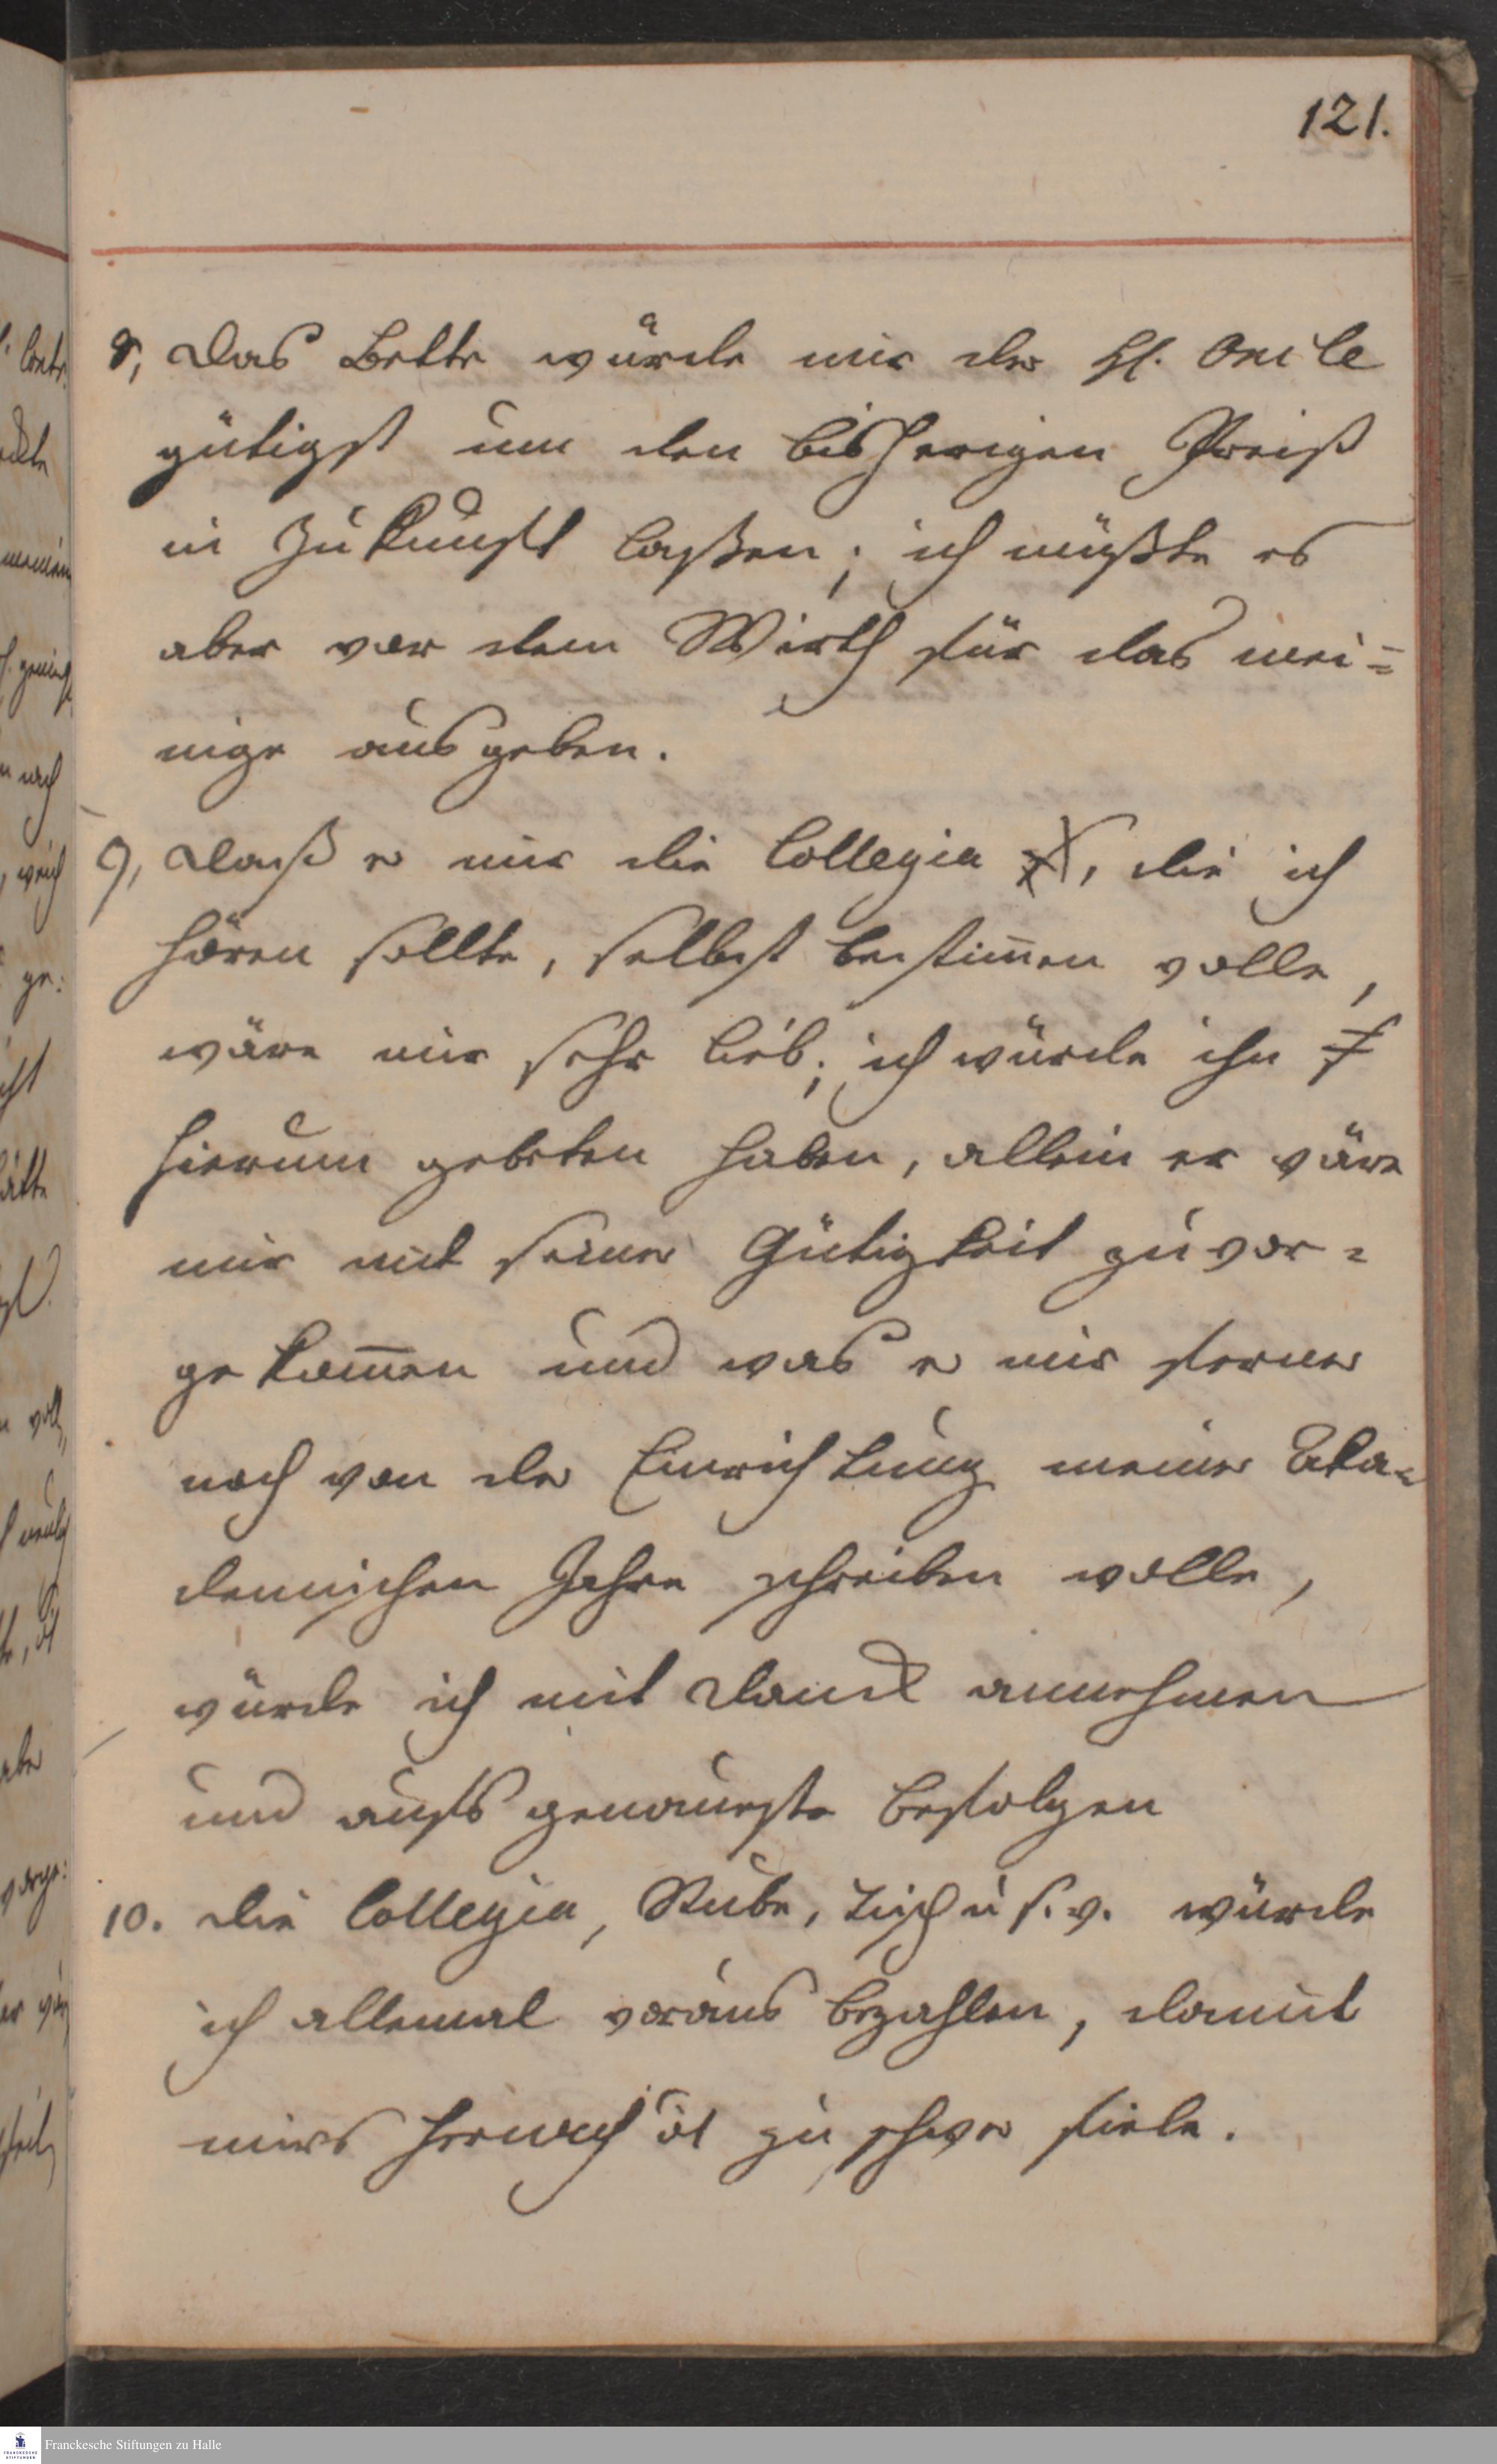 121.
8, Das Bette würde mir der H. Oncle
gütigst um den bisherigen Preiß
in Zukunft laßen; ich müßte es
aber vor dem Wirth für das mei=
nige ausgeben.
9, Daß er mir die Collegia, die ich
hören sollte, selbst bestim̅en wolle,
wäre mir sehr lieb; ich würde ihn
hierum gebeten haben, allein er wäre
mir mit seiner Gütigkeit zuvor=
gekom̅en und was er mir ferner
noch von der Einrichtung meiner Aka=
demischen Jahre schreiben wolle,
würde ich mit Dank annehmen
und aufs genaueste befolgen
10. Die Collegia, Stube, Tisch u s. w. würde
ich allemal voraus bezahlen, damit
mirs hernach zu schwer fiele.
Franckesche Stiftungen zu Halle